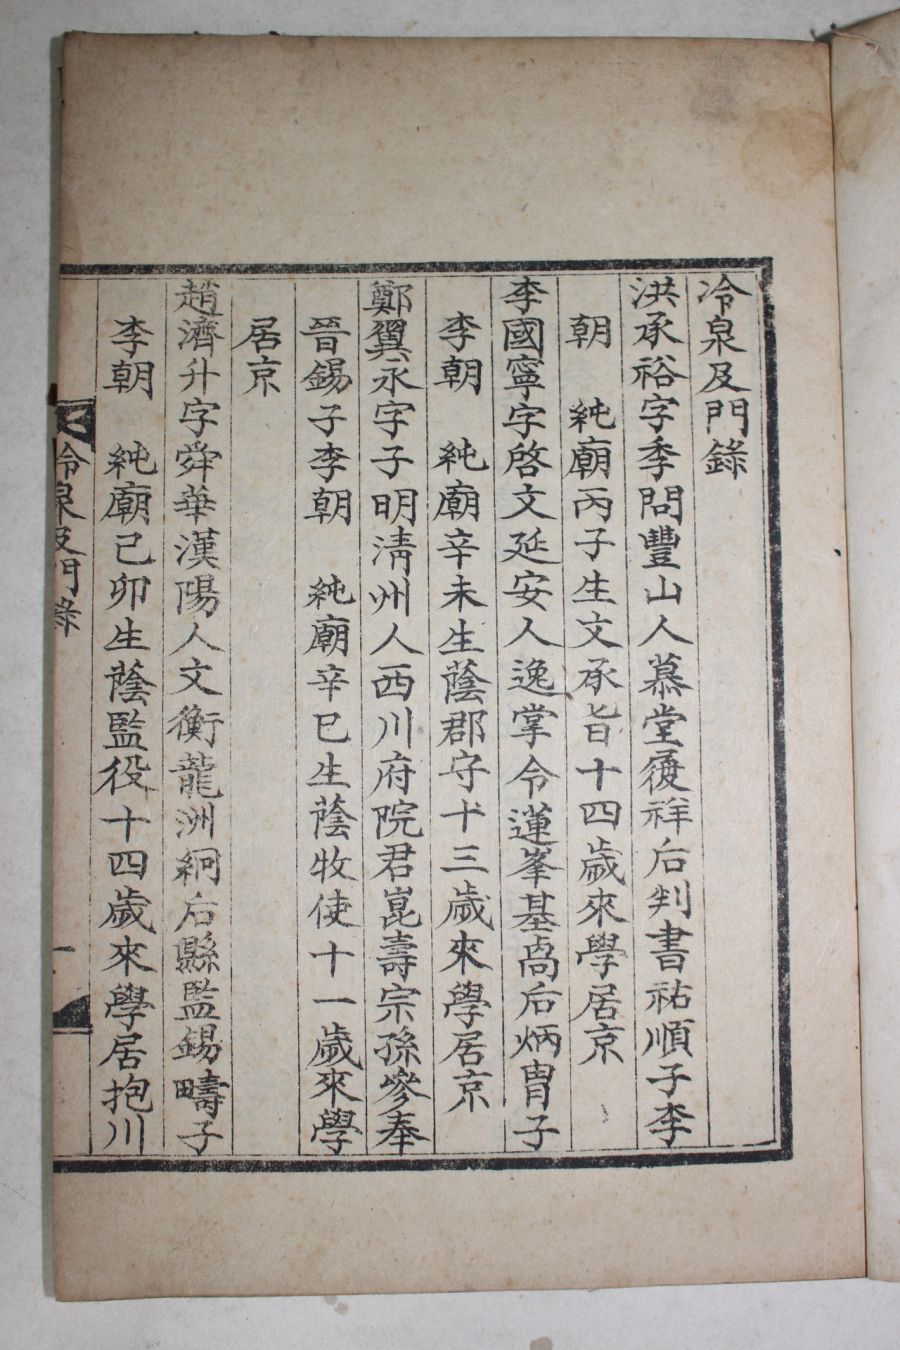 冷泉及門錄
洪承裕字季問豐山人慕堂履祥后判書祐順子李
朝　純廟丙子生文承旨十四歲來學居京
李國寧字啓文延安人逸掌令蓮峯基卨后炳胄子
李朝　純廟辛未生蔭郡守十三歲來學居京
鄭翼永字子明淸州人西川府院君崑壽宗孫參奉
晉錫子李朝　純廟辛巳生蔭牧使十一歲來學
居京
趙濟升字舜華漢陽人文衡龍洲絅后縣監錫疇子
李朝　純廟己卯生蔭監役十四歲來學居抱川
冷泉及門錄
一